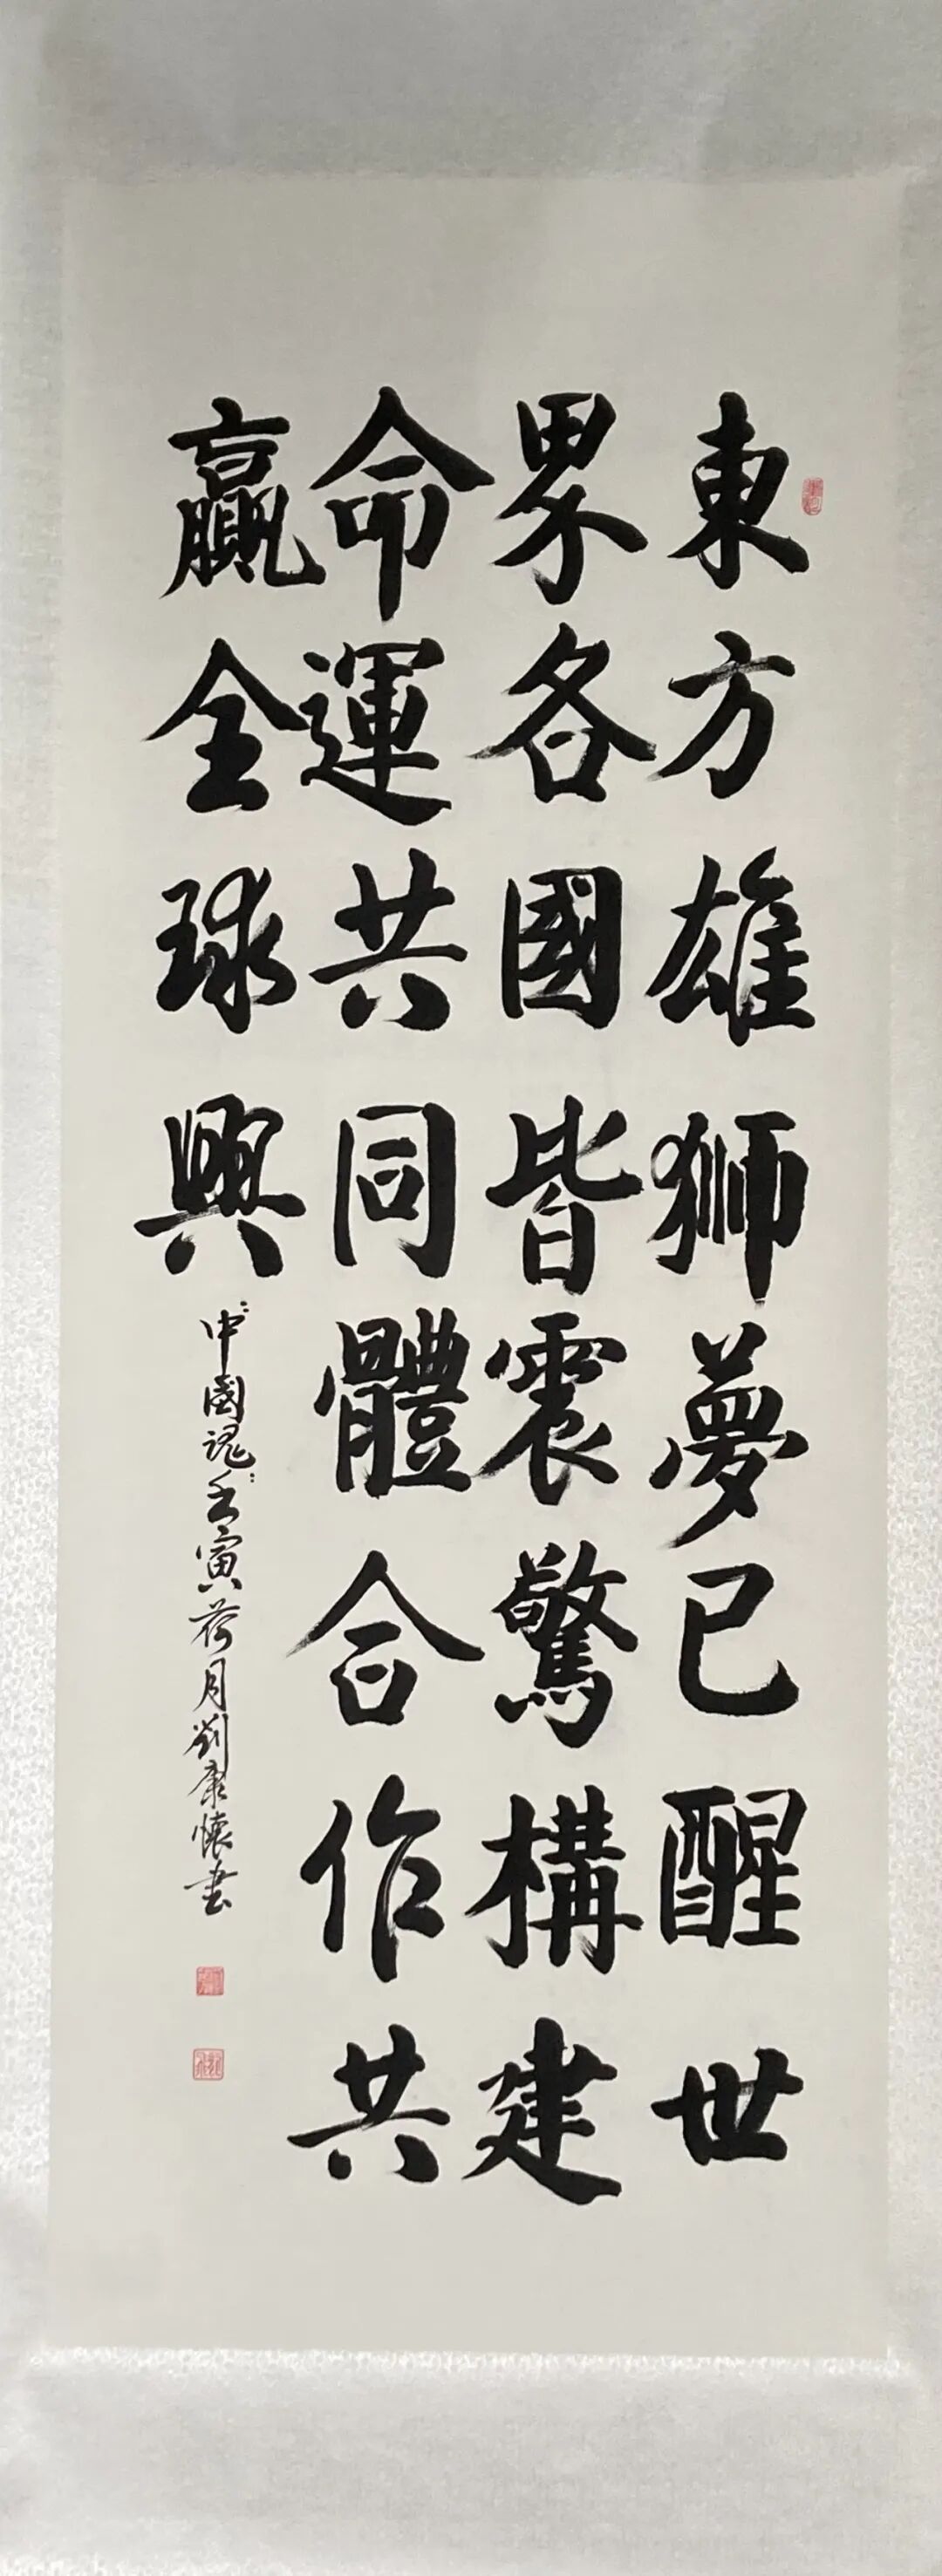 東方雄獅夢已醒世
界各國皆震驚構建
命運共同體合作共
贏全球興
中國魂壬寅荷月劉康懷書